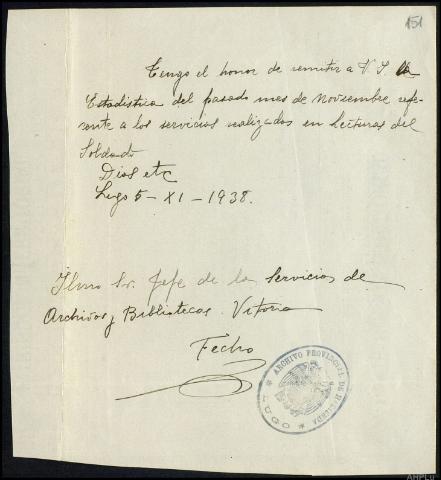 151
Tengo el honor de remitir a V. S. la
Estadistica del pasado mes de Noviembre refe-
rente a los servicios realizados en Lecturas del
Soldado
Dios etc
Lugo 5 - XI - 1938.
Ilmo Sr. Jefe de los Servicios de
Archivos y Bibliotecas. Vitoria
Fecho
ARCHIVO PROVINCIAL DE HACIENDA
* LUGO *
AHPLu